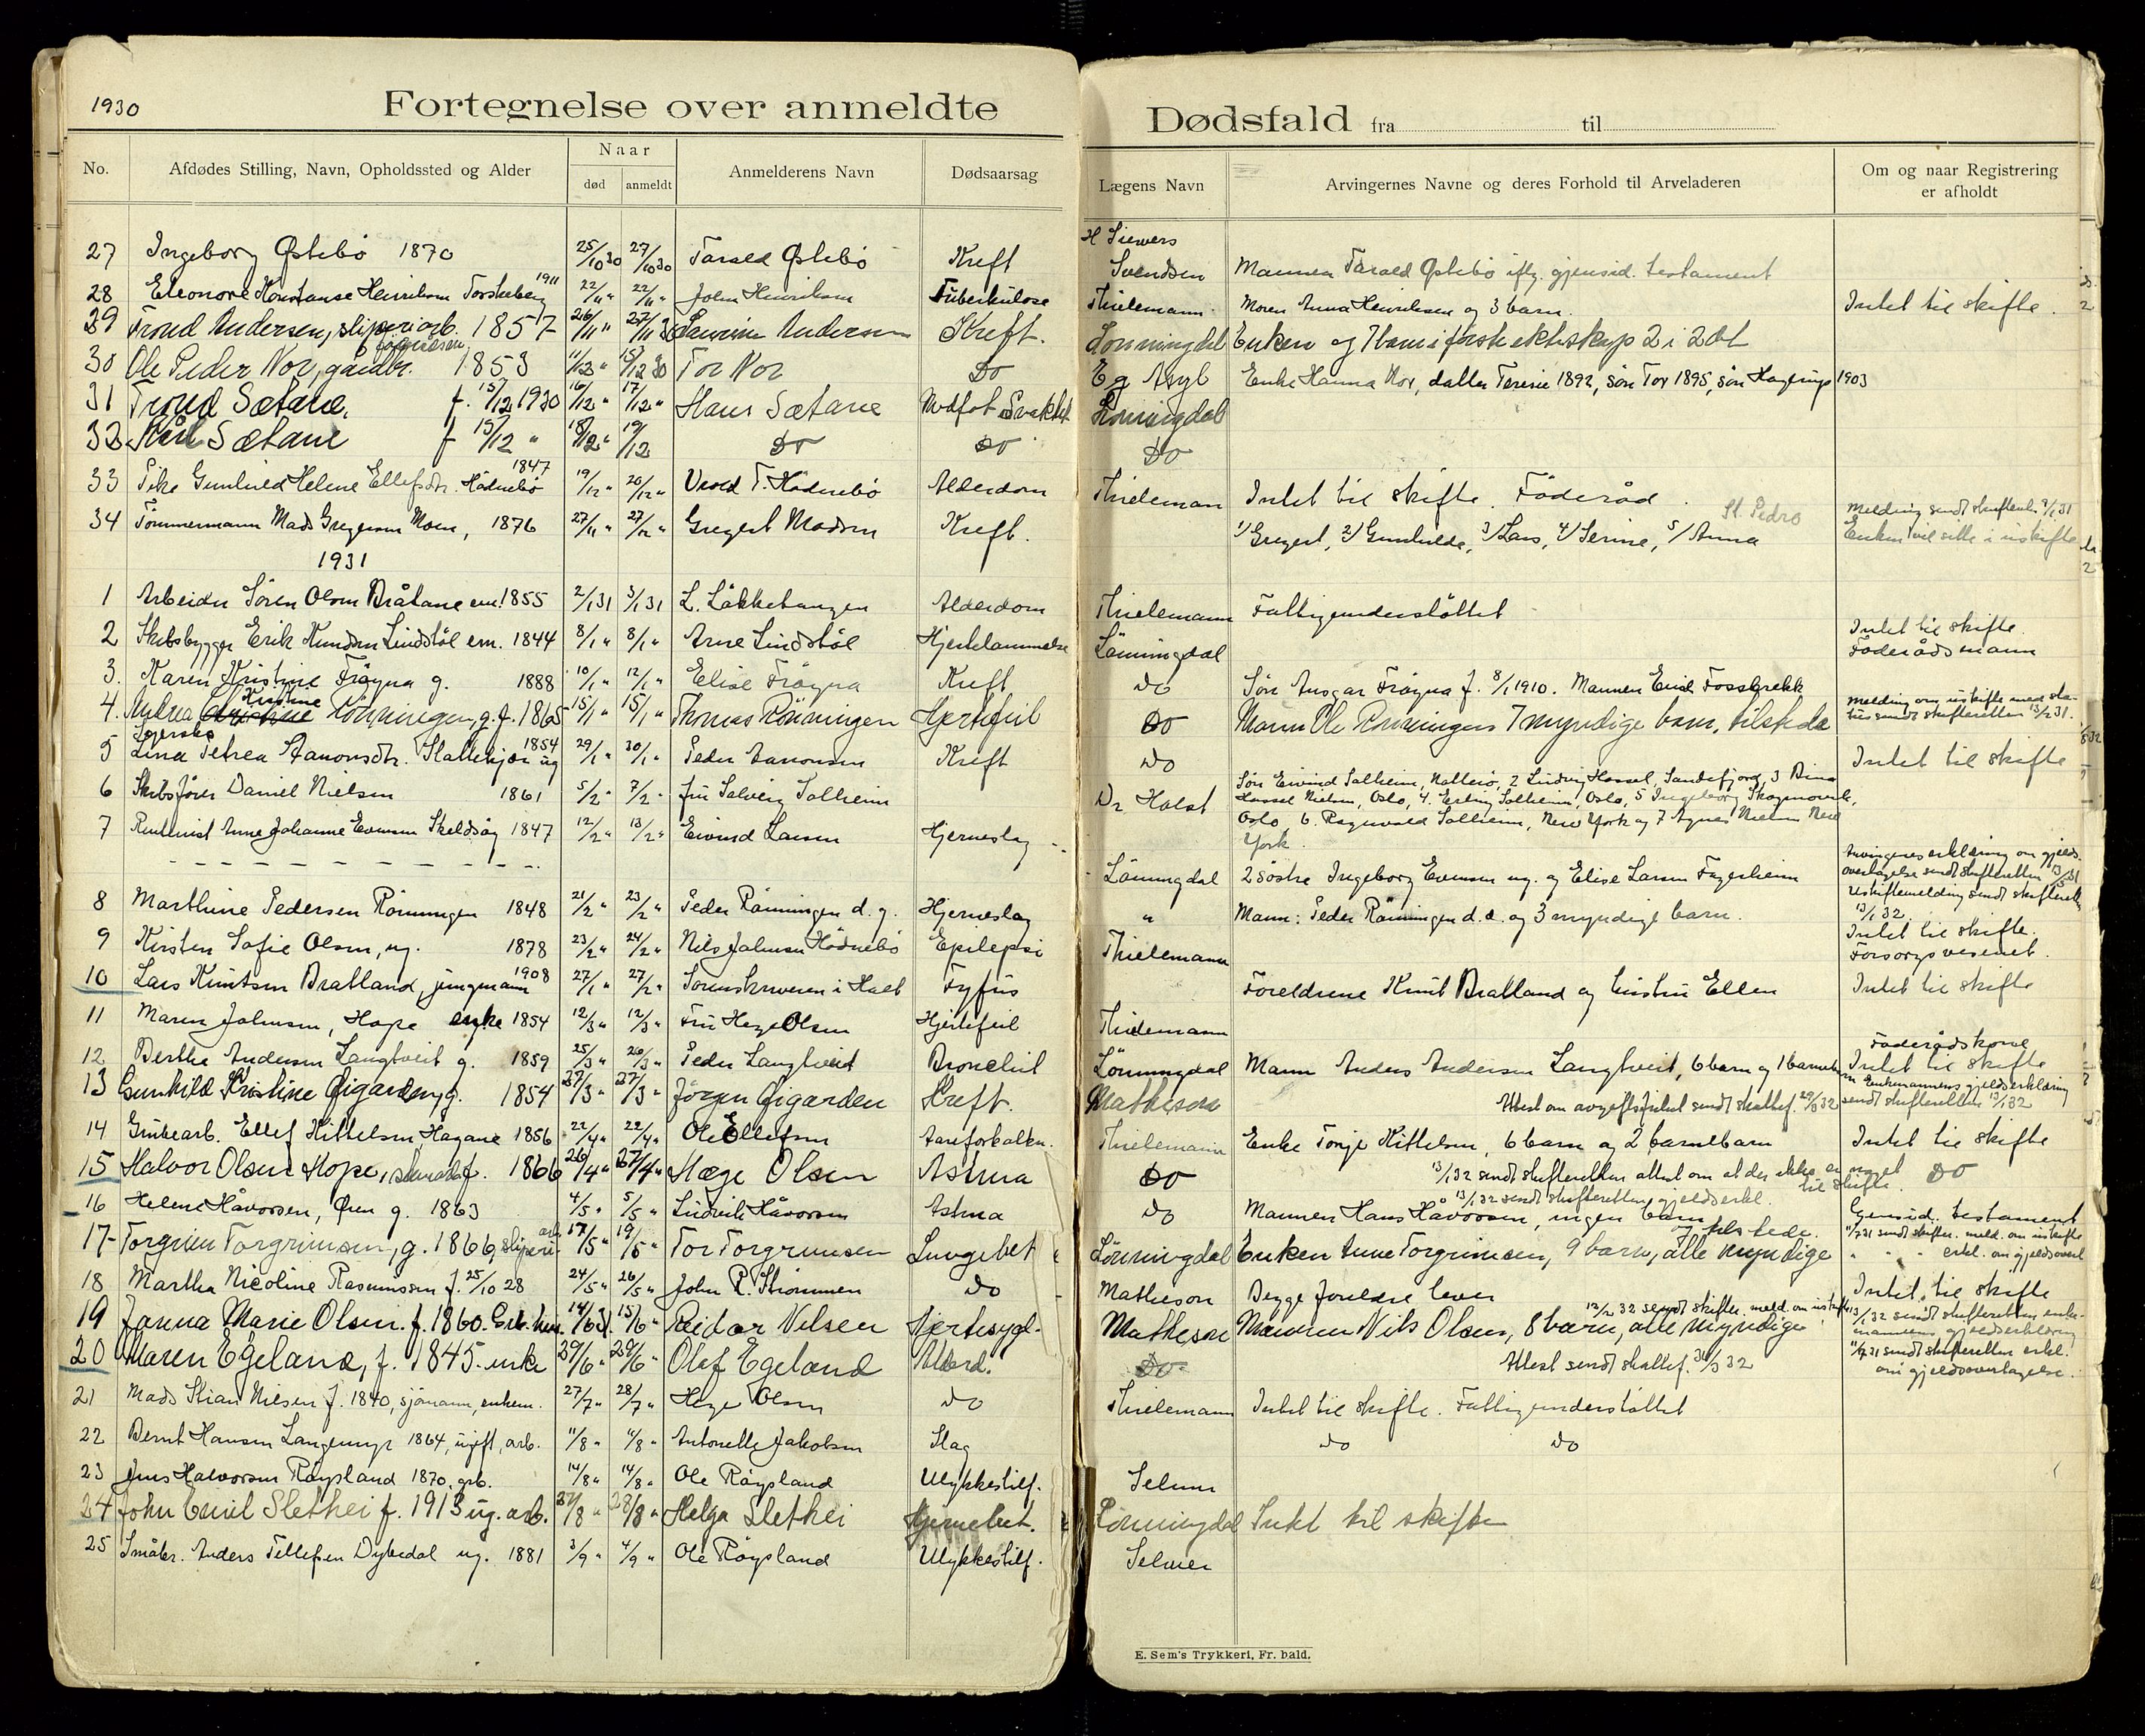 1930 Fortegnelse over anmeldte Dødsfald fra til
No. Afdødes Stilling, Navn, Opholdssted og Alder Naar død anmeldt Anmelderens Navn Dødsaarsag Lægens Navn Arvingernes Navne og deres Forhold til Arveladeren Om og naar Registrering er afholdt
27 Ingeborg Østebö 1870 25/10 30 27/10 30 Tarald Østebö Kreft H Siewers Svendsen Mannen Tarald Østebö iflg. gjensid. testament
28 Eleonore Konstanse Henriksen 1911 22/11 " 22/11 " John Henriksen Tuberkulose Thielemann Moren Anna Henriksen og 3 barn. Intet til skifte.
29 Trond Andersen, sliperiarb. 1857 26/11 " 27/11 30 Andersen Kreft. Lönningdal Enken og 7 barn i förste ekteskap 2 i 2det
30 Ole Peder Nor, gårdbr. 1853 11/12 " 15/12 30 Tor Nor Do Eg Asyl Enke Hanna Nor, datter Teresie 1892, sön Tor 1895, sön 1903
31 Trond Sætane, f. 15/12 1930 16/12 " 17/12 " Hans Sætane Medföt Svakhet Lönningdal
32 Sætane f 15/12 " 18/12 " 19/12 Do Do Do
33 Pike Gunhild Helene Ellefsdtr. Hödnebö 1847 19/12 " 20/12 " T. Hödnebö Alderdom Thieleman Intet til skifte. Föderåd.
34 Tömmermann Mads Gregersen Moen, 1876 27/11 " 27/12 " Gregert Madsen Kreft. 1/ Gregert, 2/ Gunhilde, 3/ Lars, 4/ Serine, 5/ Anna St. Pedro Melding sendt skifteretten 9/1 31 Enken vil sitte i uskifte
1931
1 Arbeider Sören Olsen Bråtane em. 1855 2/1 31 3/1 31 L. Låkketangen Alderdom Thielemann Fattigunderstöttet
2 Skibsbygger Erik Knudsen Lindstöl em. 1844 8/1 " 8/1 " Arne Lindstöl Hjertelammelse Lönningdal Intet til skifte. Föderådsmann
3. Karen Kristine Fröyna g. 1888 10/1 " 12/1 " Elise Fröyna Kreft Do Sön Ansgar Fröyna f. 8/1 1910. Mannen
4. Andrea Kristine Rönningen, g. f. 1865 15/1 " 15/1 " Thomas Rönningen Hjertefeil Do Mann Ole Rönningen 7 myndige barn, tilstede melding om uskifte med status sendt skifteretten 13/2 31.
5 Lina Petrea Aanonsdtr. ug 1854 29/1 " 30/1 " Peder Aanonsen Kreft Do Intet til skifte
6 Skibsförer Daniel Nielsen 1861 5/2 " 7/2 " fru Solveig Solheim Dr Holst Sön Eivind Solheim, 2 Ludvig Hassel, Sandefjord, 3 Hassel Nielsen, Oslo, 4. Erling Solheim, Oslo, 5 Ingeborg Oslo, 6. Ragnvald Solheim, New York og 7 Agnes Nielsen New York.
7 Rentenist Anne Johanne Evensen 1847 12/2 " 13/2 " Eivind Larsen Hjerneslag Lönningdal 2 söstre Ingeborg Evensen ug. og Elise Larsen Fagerheim Arvingenes erklæring om gjeldsovertagelse sendt skifteretten
8 Marthine Pedersen Rönningen 1848 21/2 " 23/2 " Peder Rönningen d. y. Hjerneslag " Mann: Peder Rönningen d. e. og 3 myndige barn. Uskiftemelding sendt skifteretten 13/1 32.
9 Kirsten Sofie Olsen, ug. 1878 23/2 " 24/2 " Nils Johnsen Hödnebö Epilepsi Thielemann Intet til skifte. Forsorgsvesenet.
10 Lars Knutsen Bratland, jungmann 1908 27/1 " 27/2 " Sorenskriveren i Holt Tyfus Foreldrene Knut Bratland og hustru Ellen Intet til skifte
11 Maren Johnsen, Hope enke 1854 12/3 " 12/3 " Fru Hege Olsen Hjertefeil Thielemann
12. Berthe Andersen Langtveit g. 1859 25/3 " 26/3 " Peder Langtveit Bronchit Lönningdal Mann Anders Andersen Langtveit, 6 barn og 1 barnebarn Föderådskone Intet til skifte
13 Gunhild Kristine Gigarden g. 1854 27/3 " 27/3 " Jörgen Gigarden Kreft. Matheson Attest om avgiftsfrihet sendt skattef. 29/3 32 Enkemannens gjeldserklæring sendt skifteretten 13/1 32
14 Grubearb. Ellef Kittelsen, Hagane 1856 22/4 " 22/4 " Ole Ellefsen Aareforkalkn. Thielemann Enke Tonje Kittelsen, 6 barn og 2 barnebarn Intet til skifte
15 Halvor Olsen Hope, f. 1866 26/4 " 27/4 " Hæge Olsen Astma Do 13/1 32 sendt skifteretten attest om at der ikke er noget til skifte. Do
16 Helene Håvorsen, Øren g. 1863 4/5 " 5/5 " Ludvik Håvorsen Astma Do 13/1 32 sendt skifteretten gjeldserkl. Mannen Hans Håvorsen, ingen barn Gjensid. testament
17 Torgrim Torgrimsen, g. 1866, sliperiarb. 17/5 " 19/5 " Tor Torgrimsen Lungebet Lönningdal Enken Anne Torgrimsen, 9 barn, alle myndige og tilstede. 11/7 31 sendt skifter. meld. om uskifte " " " erkl. om gjeldsovert
18 Martha Nicoline Rasmussen f. 25/10 28 24/5 " 26/5 " John R. Strömmen Do Matheson Begge foreldre lever Intet til skifte
19 Janna Marie Olsen. f. 1860. 14/6 31. 15/6 " Reidar Nilsen Hjertesygd. Matheson Mannen Nils Olsen, 8 barn, alle myndige 12/2 32 sendt skifter. meld. om uskifte 13/1 32 sendt skifteretten enkemannens gjeldserklæring
20 Maren Egeland, f. 1845. enke 29/6 " 29/6 " Olaf Egeland Alderd. Do Attest sendt skattef. 31/3 32 11/7 31 sendt skifteretten erkl. om gjeldsovertagelse.
21 Mads Stian Nilsen f. 1840, sjömann, enkem. 27/7 " 28/7 " Hege Olsen Do Thielemann Intet til skifte. Fattigunderstöttet
22 Bernt Hansen Langemyr 1864, ugift, arb. 11/8 " 11/8 " Antonette Jakobsen Slag Do Do
23 Jens Halvorsen Röysland 1870. grb. 14/8 " 14/8 " Ole Röysland Ulykkestilf. Selmer
24 John Emil Slethei f. 1913 ug. arb. 27/8 " 28/8 " Helga Slethei Hjernebet. Lönningdal Intet til skifte
25 Småbr. Anders Tellefsen Dybedal ug. 1881 3/9 " 4/9 " Ole Röysland Ulykkestilf. Selmer
E. Sem's Trykkeri, Fr. hald.